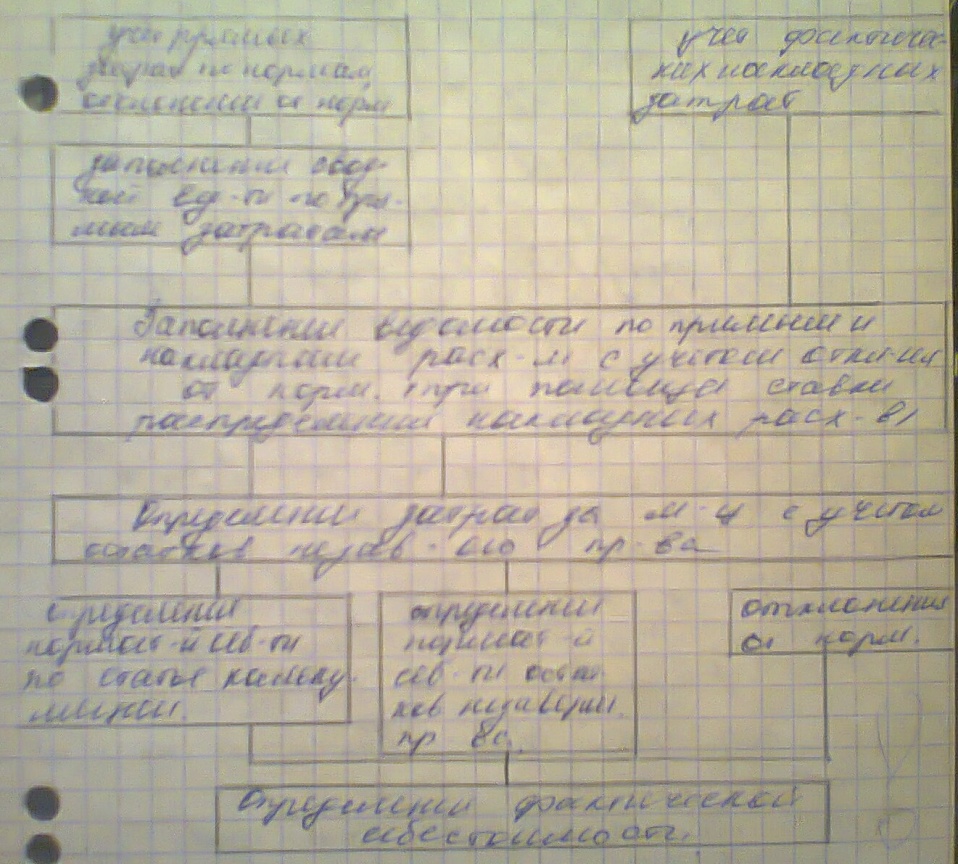 учет прямых
затрат по нормам
отклонений от норм
учет фактичес-
ких накладных
затрат
заполнении свод-
ной вед-ти по пря-
мым затратам
Заполнении ведомости по прямым и
накладным расх-м с учетом откл-ий
от норм. (при помощи ставки
распределения накладных расх-в)
Определении затрат за м-ц с учетом
остатков незав-ого пр-ва
определении
нормат-й себ-ти
по статье кальку-
ляции.
определении
нормат-й
себ-ти остат
ков незаверш.
пр-ва.
отклонения
от норм.
Определении фактической
себестоимости.